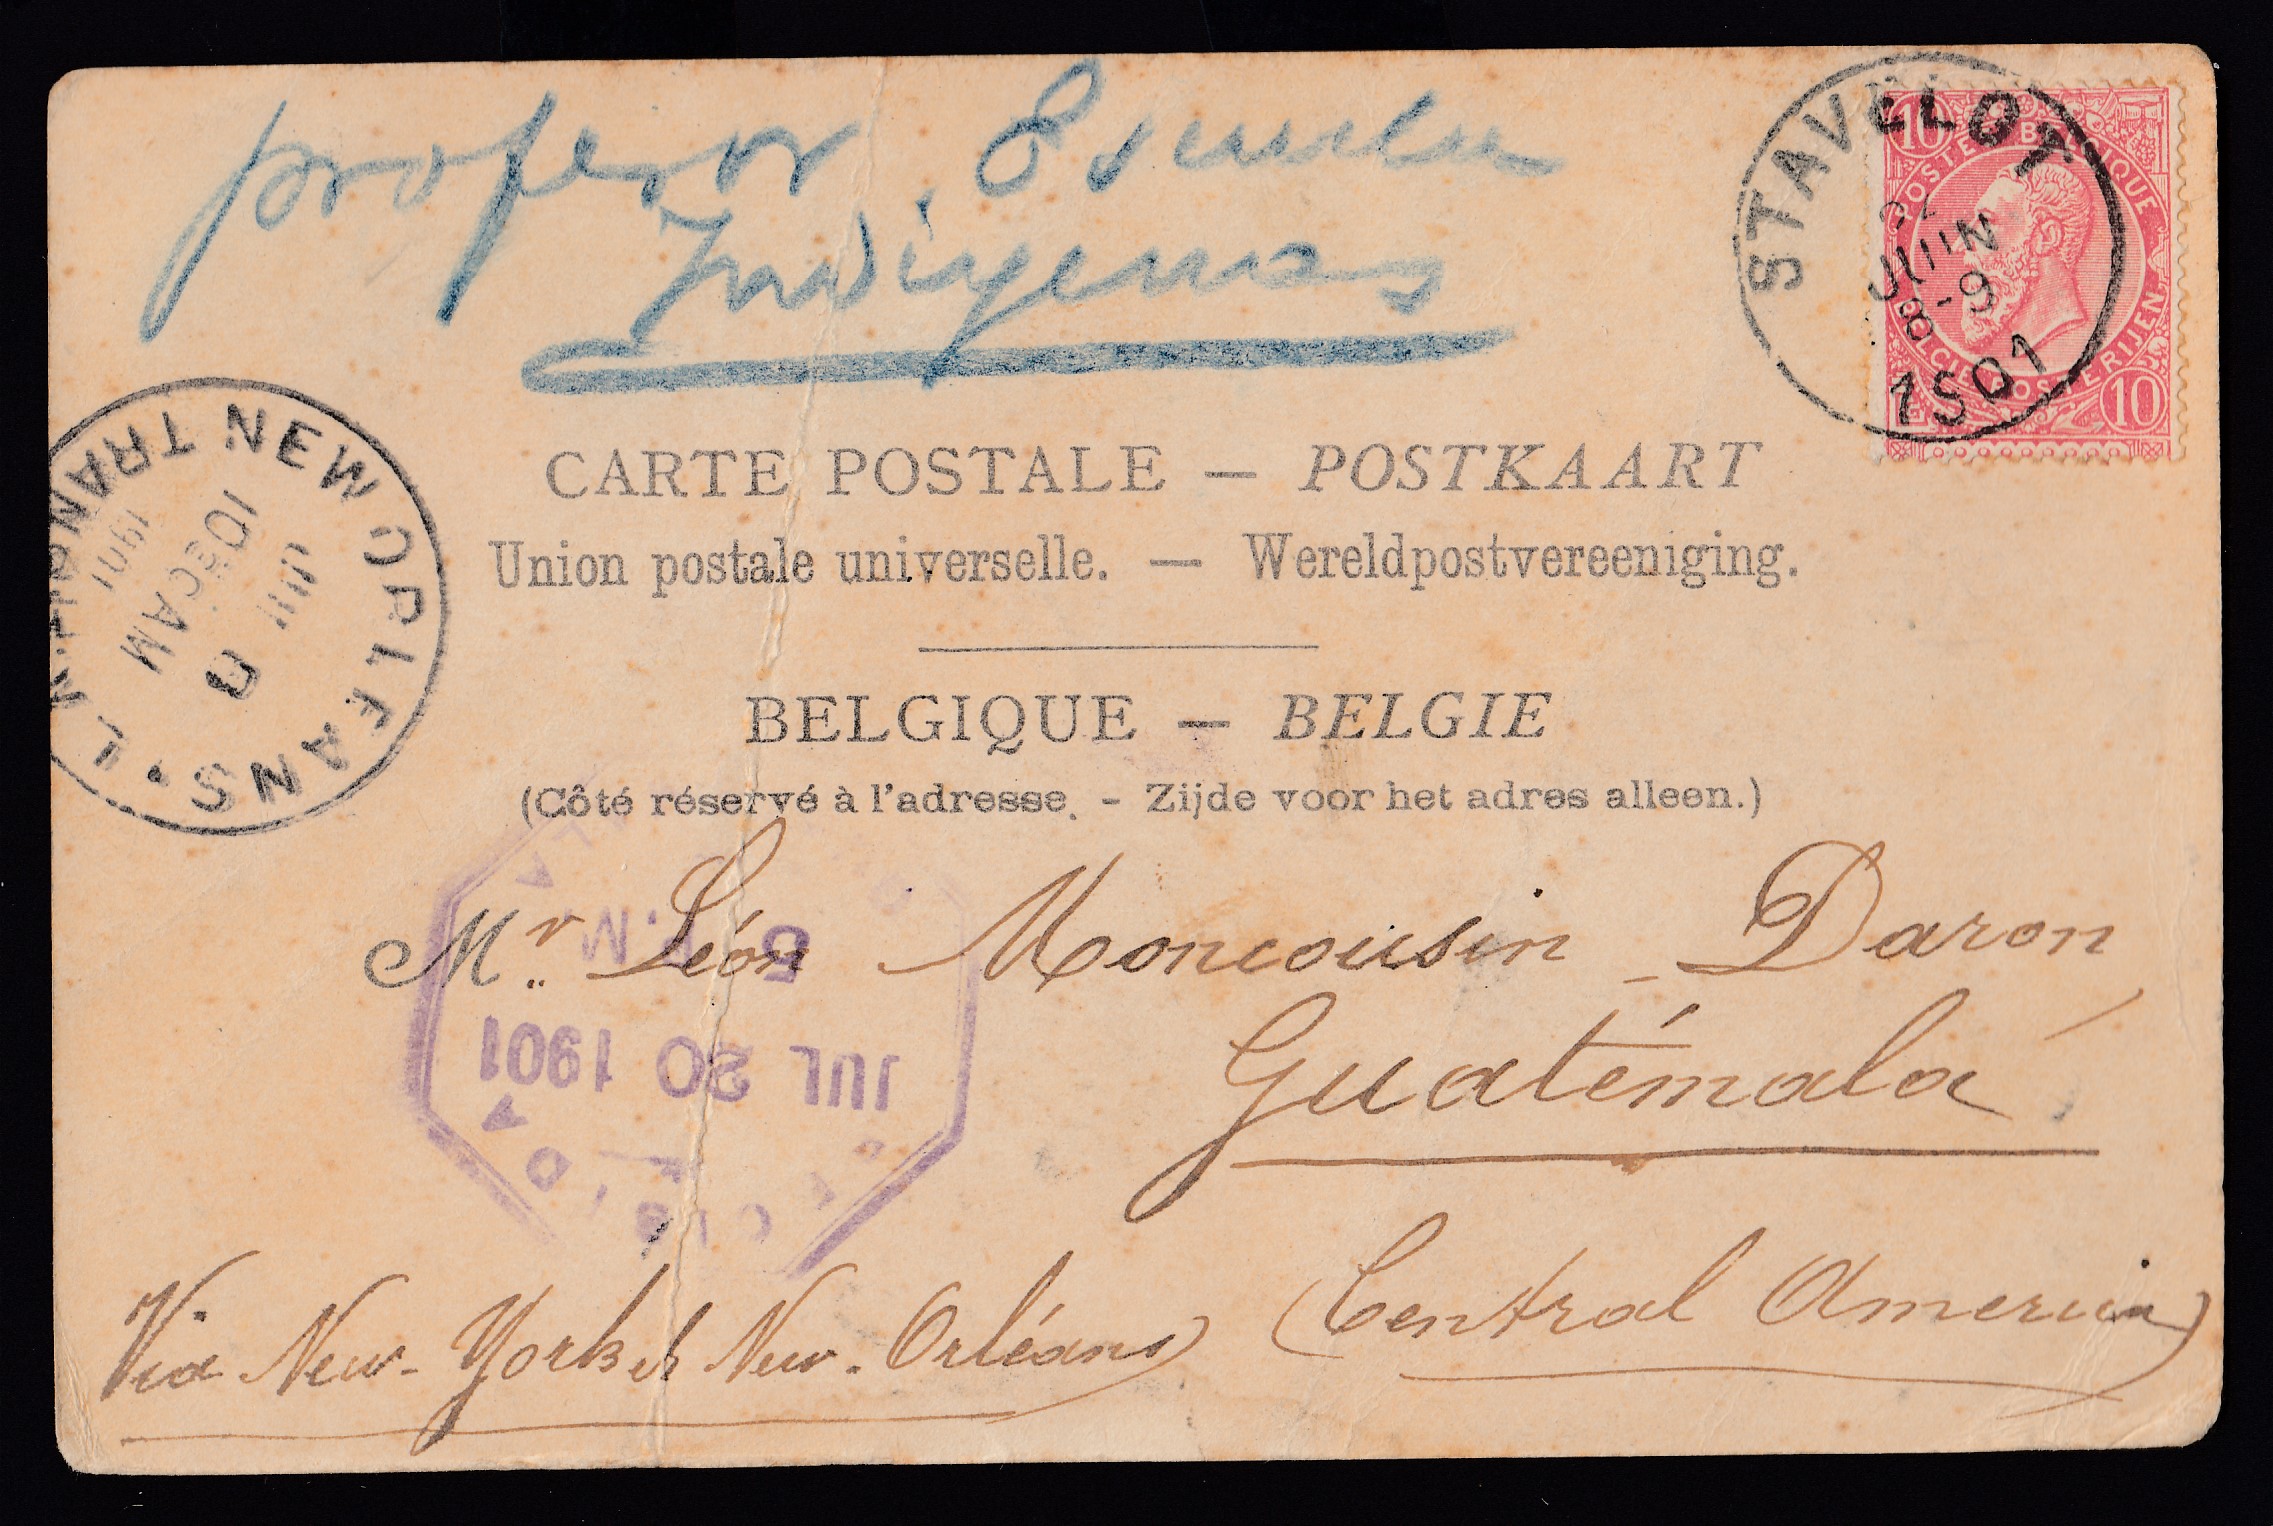 profesor Escuela
Indigenas
10 10
POSTES BELGIQUE
BELGIE POSTERIJEN
10
STAVELOT
JUIN
8-9
1901
NEW ORLEANS
TRANSIT
10 AM
1901
CARTE POSTALE — POSTKAART
Union postale universelle. — Wereldpostvereeniging.
BELGIQUE — BELGIE
(Côté réservé à l'adresse. - Zijde voor het adres alleen.)
Mr. Léon Moncousin - Daron
Guatémala
5 M.
JUL 20 1901
Via New-York et New-Orléans (Central America)